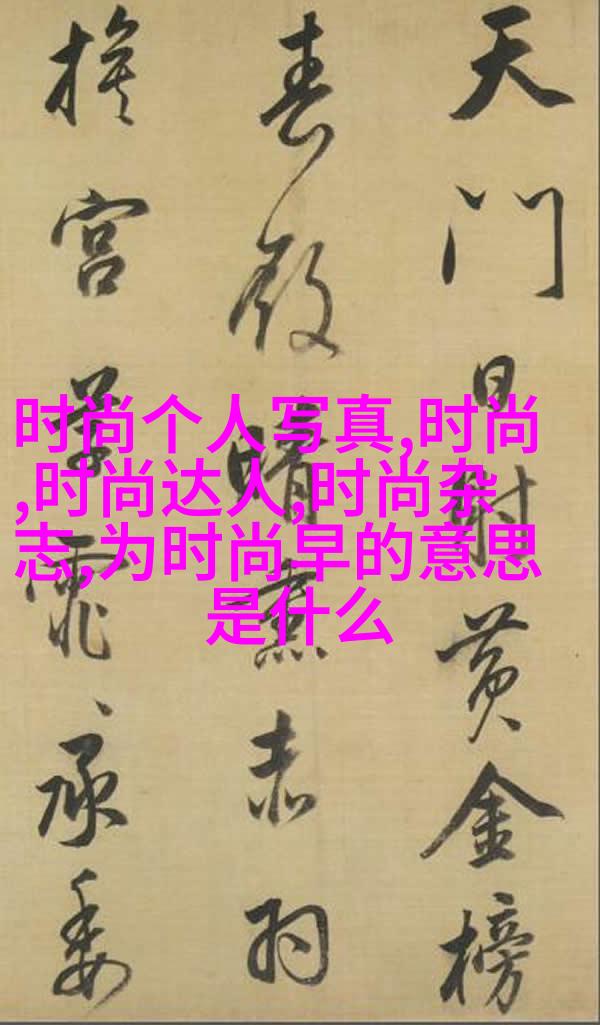 天门日射黄金榜
春殿晴熏赤羽
旗宫草霏〻承委
时尚个人写真,时尚
,时尚达人,时尚杂
志,为时尚早的意思
是什么